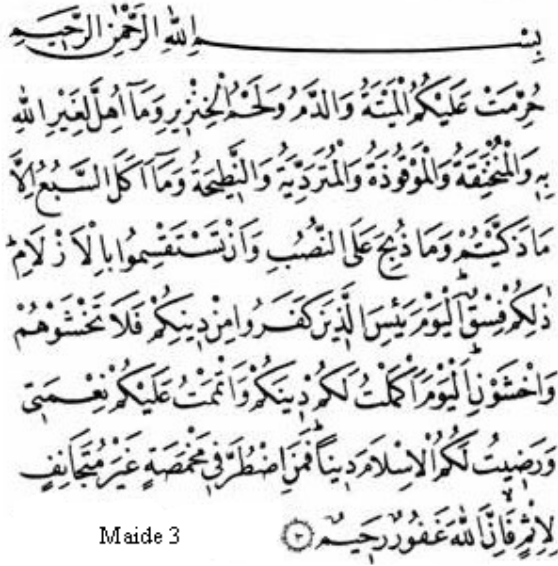 بِسْمِ اللهِ الرَّحْمٰنِ الرَّحِيمِ
حُرِّمَتْ عَلَيْكُمُ الْمَيْتَةُ وَالدَّمُ وَلَحْمُ الْخِنْزِيرِ وَمَآ اُهِلَّ لِغَيْرِ اللهِ
بِهٖ وَالْمُنْخَنِقَةُ وَالْمَوْقُوذَةُ وَالْمُتَرَدِّيَةُ وَالنَّطِيحَةُ وَمَآ اَكَلَ السَّبُعُ اِلَّا
مَا ذَكَّيْتُمْ وَمَا ذُبِحَ عَلَى النُّصُبِ وَاَنْ تَسْتَقْسِمُوا بِالْاَزْلَامِ ۜ
ذٰلِكُمْ فِسْقٌ ۜ اَلْيَوْمَ يَئِسَ الَّذِينَ كَفَرُوا مِنْ دِينِكُمْ فَلَا تَخْشَوْهُمْ
وَاخْشَوْنِ ۜ اَلْيَوْمَ اَكْمَلْتُ لَكُمْ دِينَكُمْ وَاَتْمَمْتُ عَلَيْكُمْ نِعْمَتِي
وَرَضِيتُ لَكُمُ الْاِسْلَامَ دِينًا ۜ فَمَنِ اضْطُرَّ فِي مَخْمَصَةٍ غَيْرَ مُتَجَانِفٍ
لِاِثْمٍ ۙ فَاِنَّ اللهَ غَفُورٌ رَحِيمٌ ﴿٣﴾
Maide 3